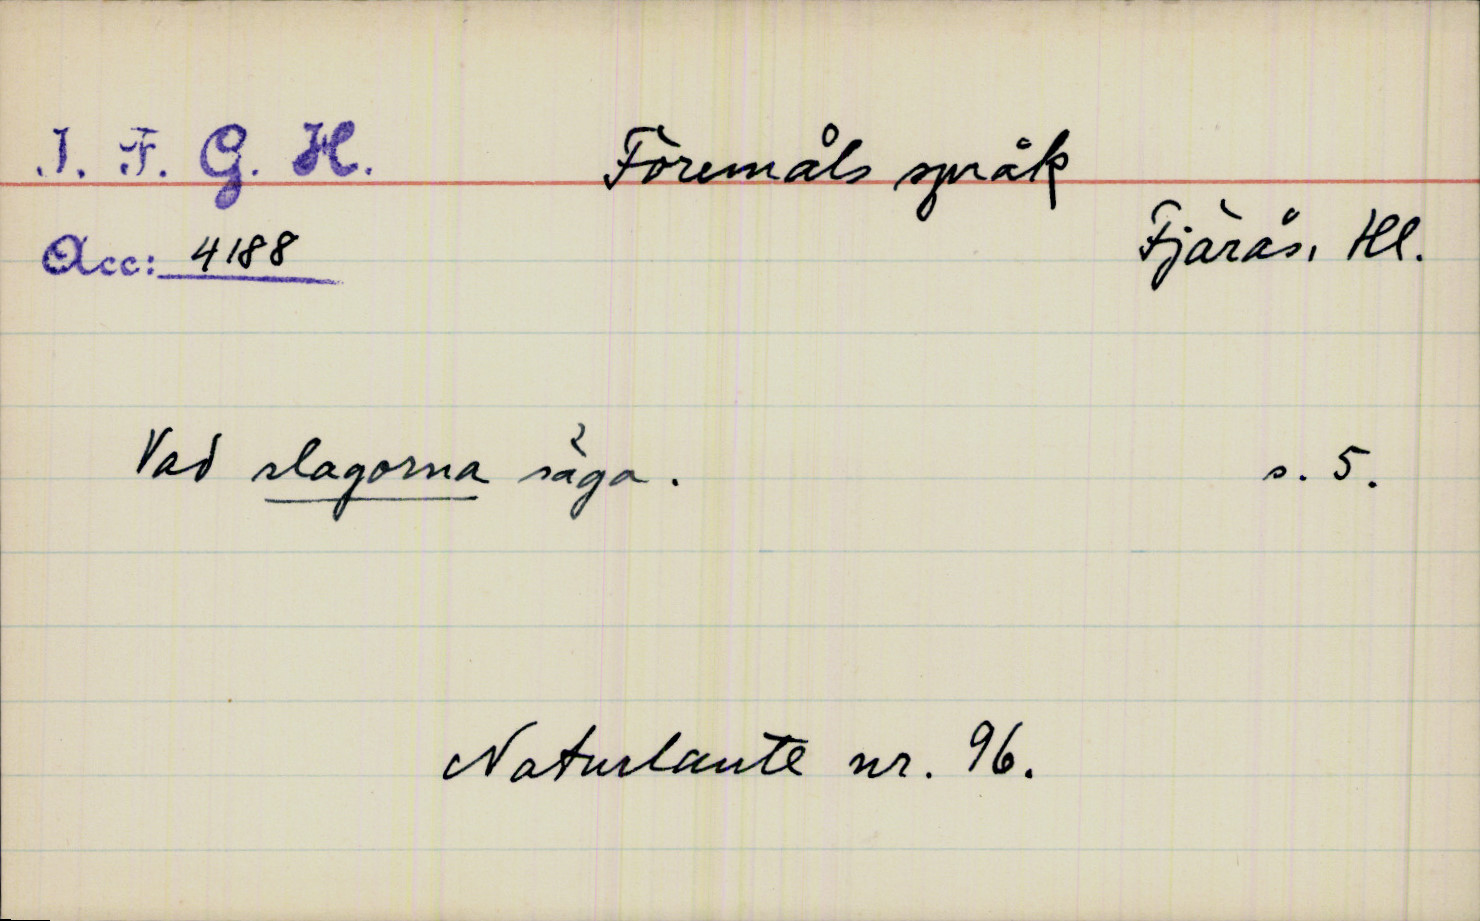 I. F. G. H.
Föremåls språk
Fjärås, Hl.
Acc: 4188
Vad slagorna säga.
s. 5.
Naturlaute nr. 96.